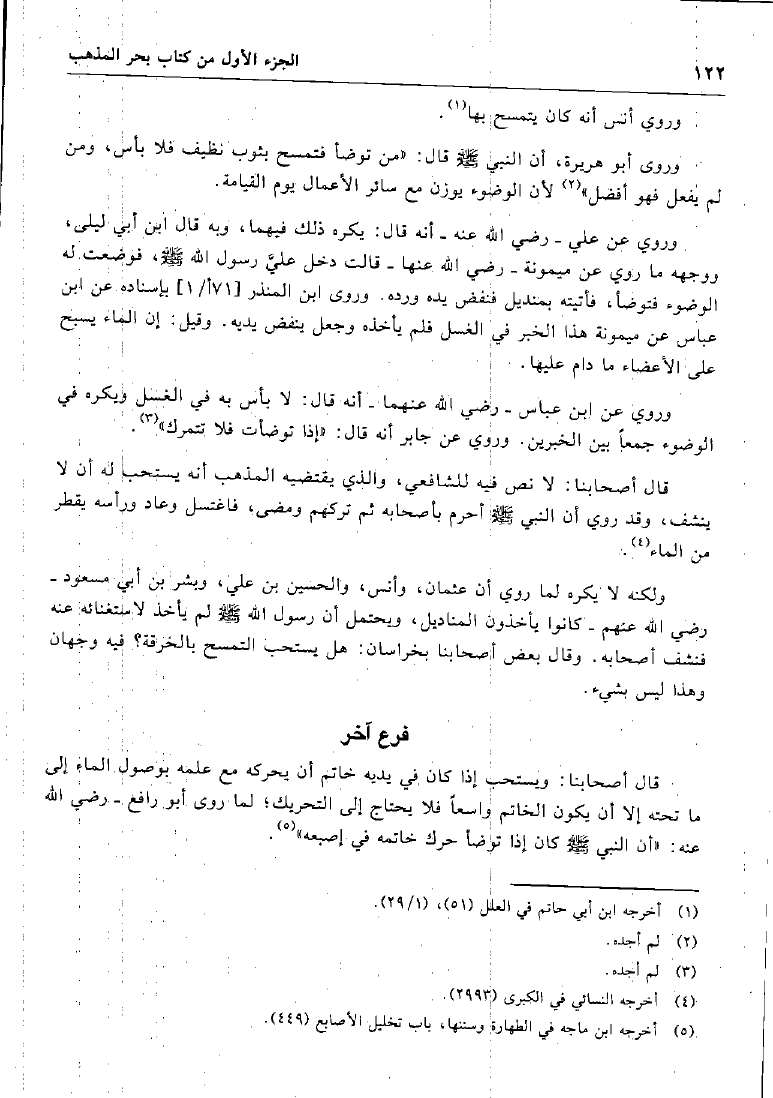 ١٢٢ الجزء الأول من كتاب بحر المذهب
وروي أنس أنه كان يتمسح بها(١).
وروى أبو هريرة، أن النبي ﷺ قال: «من توضأ فتمسح بثوب نظيف فلا بأس، ومن
لم يفعل فهو أفضل»(٢) لأن الوضوء يوزن مع سائر الأعمال يوم القيامة.
وروي عن علي ـ رضي الله عنه ـ أنه قال: يكره ذلك فيهما، وبه قال ابن أبي ليلى،
ووجهه ما روي عن ميمونة ـ رضي الله عنها ـ قالت دخل عليَّ رسول الله ﷺ، فوضعت له
الوضوء فتوضأ، فأتيته بمنديل فنفض يده ورده. وروى ابن المنذر [٧١أ/١] بإسناده عن ابن
عباس عن ميمونة هذا الخبر في الغسل فلم يأخذه وجعل ينفض يديه. وقيل: إن الماء يسبح
على الأعضاء ما دام عليها.
وروي عن ابن عباس ـ رضي الله عنهما ـ أنه قال: لا بأس به في الغسل ويكره في
الوضوء جمعاً بين الخبرين. وروي عن جابر أنه قال: «إذا توضأت فلا تتمرك»(٣).
قال أصحابنا: لا نص فيه للشافعي، والذي يقتضيه المذهب أنه يستحب له أن لا
ينشف، وقد روي أن النبي ﷺ أحرم بأصحابه ثم تركهم ومضى، فاغتسل وعاد ورأسه يقطر
من الماء(٤).
ولكنه لا يكره لما روي أن عثمان، وأنس، والحسين بن علي، وبشر بن أبي مسعود ـ
رضي الله عنهم ـ كانوا يأخذون المناديل، ويحتمل أن رسول الله ﷺ لم يأخذ لاستغنائه عنه
فنشف أصحابه. وقال بعض أصحابنا بخراسان: هل يستحب التمسح بالخرقة؟ فيه وجهان
وهذا ليس بشيء.
فرع آخر
قال أصحابنا: ويستحب إذا كان في يديه خاتم أن يحركه مع علمه بوصول الماء إلى
ما تحته إلا أن يكون الخاتم واسعاً فلا يحتاج إلى التحريك؛ لما روى أبو رافع ـ رضي الله
عنه: «أن النبي ﷺ كان إذا توضأ حرك خاتمه في إصبعه»(٥).
(١) أخرجه ابن أبي حاتم في العلل (٥١)، (٢٩/١).
(٢) لم أجده.
(٣) لم أجده.
(٤) أخرجه النسائي في الكبرى (٢٩٩٣).
(٥) أخرجه ابن ماجه في الطهارة وسننها، باب تخليل الأصابع (٤٤٩).